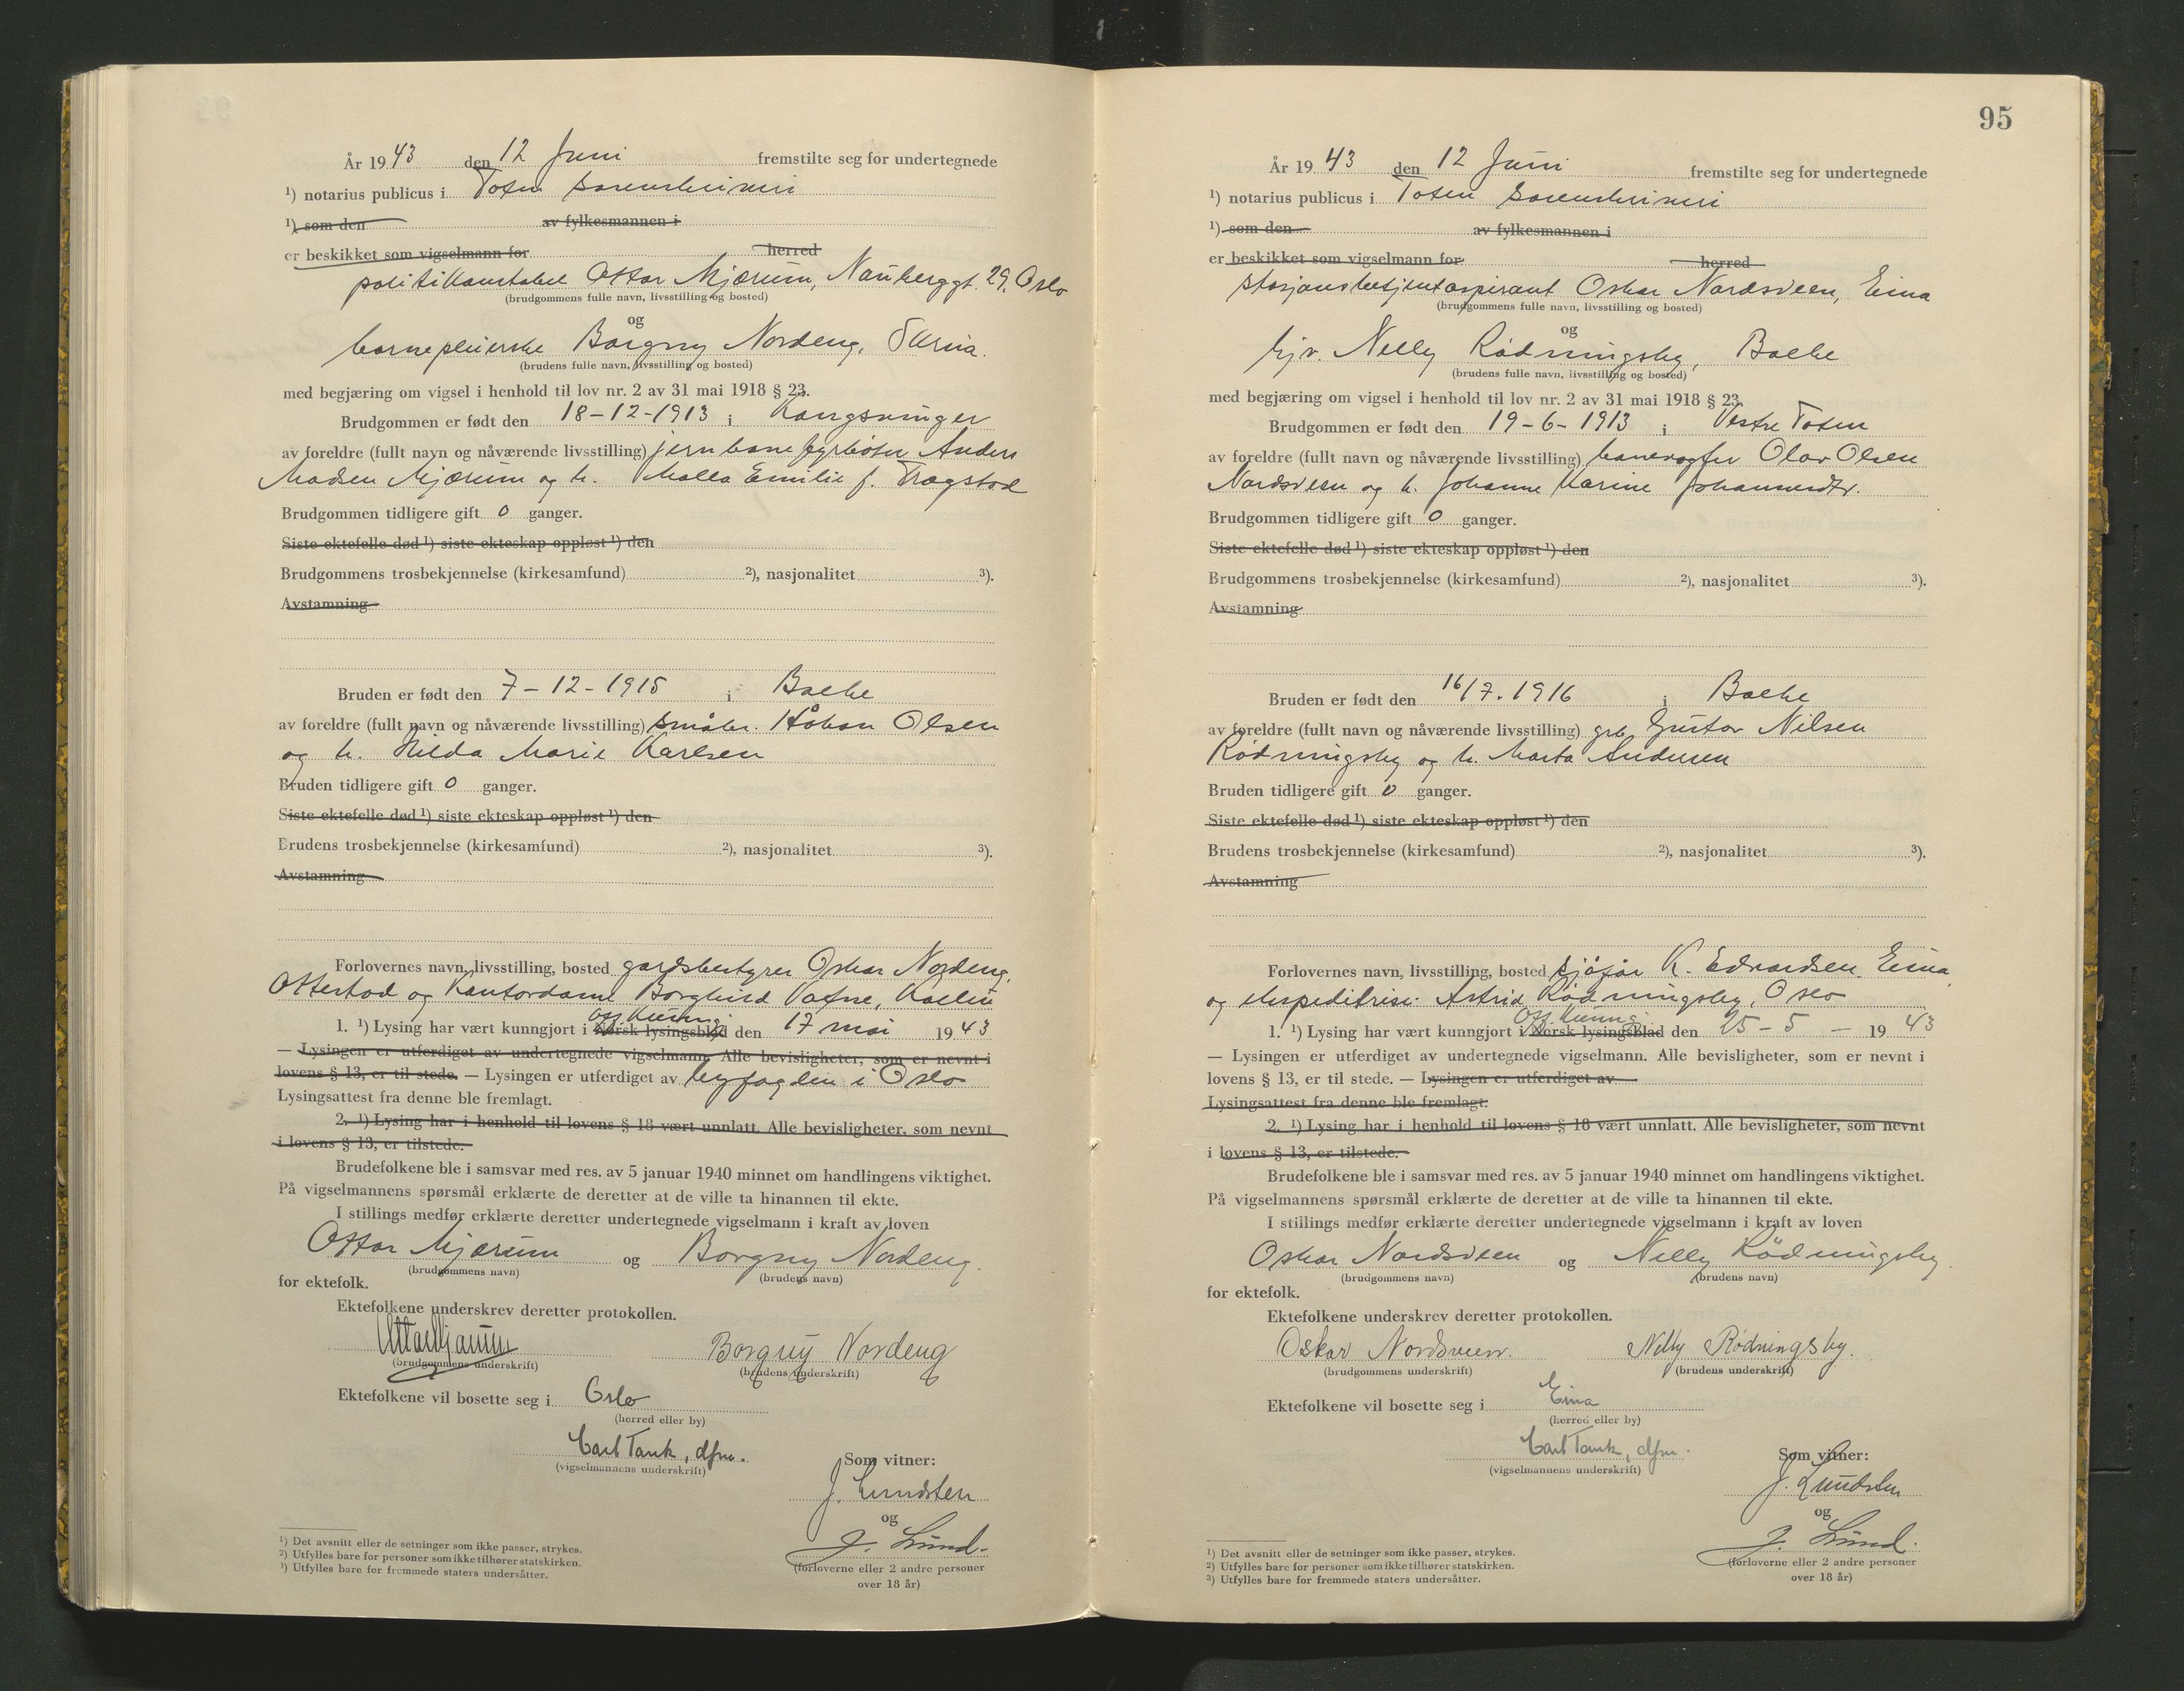 År 1943 den 12 Juni fremstilte seg for undertegnede
¹) notarius publicus i Toten sorenskriveri
¹) som den av fylkesmannen i
er beskikket som vigselmann for herred
politikonstabel Ottar Mjærum, 29, Oslo
(brudgommens fulle navn, livsstilling og bosted)
og
barnepleierske Borgny Nordeng,
(brudens fulle navn, livsstilling og bosted)
med begjæring om vigsel i henhold til lov nr. 2 av 31 mai 1918 § 23.
Brudgommen er født den 18-12-1913 i Kongsvinger
av foreldre (fullt navn og nåværende livsstilling) jernbanefyrbøter Anders
Madsen Mjærum og h. Malla Emilie f. Trøgstad
Brudgommen tidligere gift 0 ganger.
Siste ektefelle død ¹) siste ekteskap oppløst ¹) den
Brudgommens trosbekjennelse (kirkesamfund) ²), nasjonalitet ³).
Avstamning
Bruden er født den 7-12-1915 i Balke
av foreldre (fullt navn og nåværende livsstilling) småbr. Håkon Olsen
og h. Hilda Marie Karlsen
Bruden tidligere gift 0 ganger.
Siste ektefelle død ¹) siste ekteskap oppløst ¹) den
Brudens trosbekjennelse (kirkesamfund) ²), nasjonalitet ³).
Avstamning
Forlovernes navn, livsstilling, bosted gardsbestyrer Oskar Nordeng,
Ottestad og kontordame Borghild
1. ¹) Lysing har vært kunngjort i Norsk lysingsblad Off. kunng. den 17 mai 1943
— Lysingen er utferdiget av undertegnede vigselmann. Alle bevisligheter, som er nevnt i
lovens § 13, er til stede. — Lysingen er utferdiget av byfogden i Oslo
Lysingsattest fra denne ble fremlagt.
2. ¹) Lysing har i henhold til lovens § 18 vært unnlatt. Alle bevisligheter, som nevnt
i lovens § 13, er tilstede.
Brudefolkene ble i samsvar med res. av 5 januar 1940 minnet om handlingens viktighet.
På vigselmannens spørsmål erklærte de deretter at de ville ta hinannen til ekte.
I stillings medfør erklærte deretter undertegnede vigselmann i kraft av loven
Ottar Mjærum og Borgny Nordeng.
(brudgommens navn) (brudens navn)
for ektefolk.
Ektefolkene underskrev deretter protokollen.
Ottar Mjærum Borgny Nordeng
(brudgommens underskrift) (brudens underskrift)
Ektefolkene vil bosette seg i Oslo
(herred eller by)
Carl Tank, dfm.
(vigselmannens underskrift)
Som vitner:
J. Lundsten
og
J. Lund.
(forloverne eller 2 andre personer
over 18 år)
¹) Det avsnitt eller de setninger som ikke passer, strykes.
²) Utfylles bare for personer som ikke tilhører statskirken.
³) Utfylles bare for fremmede staters undersåtter.
95
År 1943 den 12 Juni fremstilte seg for undertegnede
¹) notarius publicus i Toten sorenskriveri
¹) som den av fylkesmannen i
er beskikket som vigselmann for herred
stasjonsbetjentaspirant Oskar Nordsveen, Eina
(brudgommens fulle navn, livsstilling og bosted)
og
Nelly Rødningsby, Balke
(brudens fulle navn, livsstilling og bosted)
med begjæring om vigsel i henhold til lov nr. 2 av 31 mai 1918 § 23.
Brudgommen er født den 19-6-1913 i Vestre Toten
av foreldre (fullt navn og nåværende livsstilling) banevogter Olav Olsen
Nordsveen og h. Johanne Karine Johannesdtr.
Brudgommen tidligere gift 0 ganger.
Siste ektefelle død ¹) siste ekteskap oppløst ¹) den
Brudgommens trosbekjennelse (kirkesamfund) ²), nasjonalitet ³).
Avstamning
Bruden er født den 16/7.1916 i Balke
av foreldre (fullt navn og nåværende livsstilling) grb. Gustav Nilsen
Rødningsby og h. Marta Andersen
Bruden tidligere gift 0 ganger.
Siste ektefelle død ¹) siste ekteskap oppløst ¹) den
Brudens trosbekjennelse (kirkesamfund) ²), nasjonalitet ³).
Avstamning
Forlovernes navn, livsstilling, bosted sjåfør K. Edvardsen, Eina,
og ekspeditrise Astrid Rødningsby, Oslo
1. ¹) Lysing har vært kunngjort i Norsk lysingsblad Off. kunng. den 25-5- 1943
— Lysingen er utferdiget av undertegnede vigselmann. Alle bevisligheter, som er nevnt i
lovens § 13, er til stede. — Lysingen er utferdiget av
Lysingsattest fra denne ble fremlagt.
2. ¹) Lysing har i henhold til lovens § 18 vært unnlatt. Alle bevisligheter, som nevnt
i lovens § 13, er tilstede.
Brudefolkene ble i samsvar med res. av 5 januar 1940 minnet om handlingens viktighet.
På vigselmannens spørsmål erklærte de deretter at de ville ta hinannen til ekte.
I stillings medfør erklærte deretter undertegnede vigselmann i kraft av loven
Oskar Nordsveen og Nelly Rødningsby.
(brudgommens navn) (brudens navn)
for ektefolk.
Ektefolkene underskrev deretter protokollen.
Oskar Nordsveen. Nelly Rødningsby.
(brudgommens underskrift) (brudens underskrift)
Ektefolkene vil bosette seg i Eina
(herred eller by)
Carl Tank, dfm.
(vigselmannens underskrift)
Som vitner:
J. Lundsten
og
J. Lund.
(forloverne eller 2 andre personer
over 18 år)
¹) Det avsnitt eller de setninger som ikke passer, strykes.
²) Utfylles bare for personer som ikke tilhører statskirken.
³) Utfylles bare for fremmede staters undersåtter.